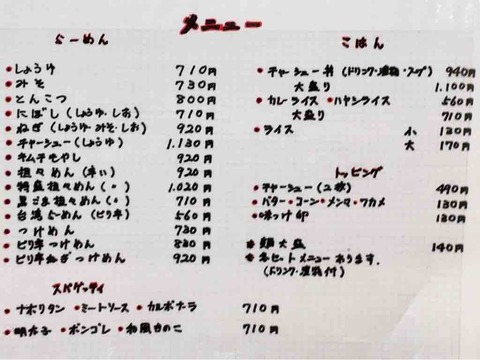 メニュー
らーめん
しょうゆ 710円
みそ 730円
とんこつ 800円
にぼし(しょうゆ・しお) 710円
ねぎ(しょうゆ・みそ・しお) 920円
チャーシュー(しょうゆ) 1.130円
キムチもやし 920円
担々めん(辛い) 920円
特盛担々めん(〃) 1.020円
黒ごま担々めん(〃) 710円
台湾らーめん(ピリ辛) 560円
つけめん 730円
ピリ辛つけめん 830円
ピリ辛ねぎつけめん 920円
スパゲッティ
ナポリタン・ミートソース・カルボナーラ 710円
明太子・ボンゴレ・和風きのこ 710円
ごはん
チャーシュー丼(ドリンク・漬物・スープ) 940円
大盛り 1.100円
カレーライス・ハヤシライス 560円
大盛り 710円
ライス 小 130円
大 170円
トッピング
チャーシュー(2枚) 490円
バター・コーン・メンマ・ワカメ 130円
味つけ卵 130円
麺大盛 140円
セットメニューあります。
(ドリンク・漬物付)